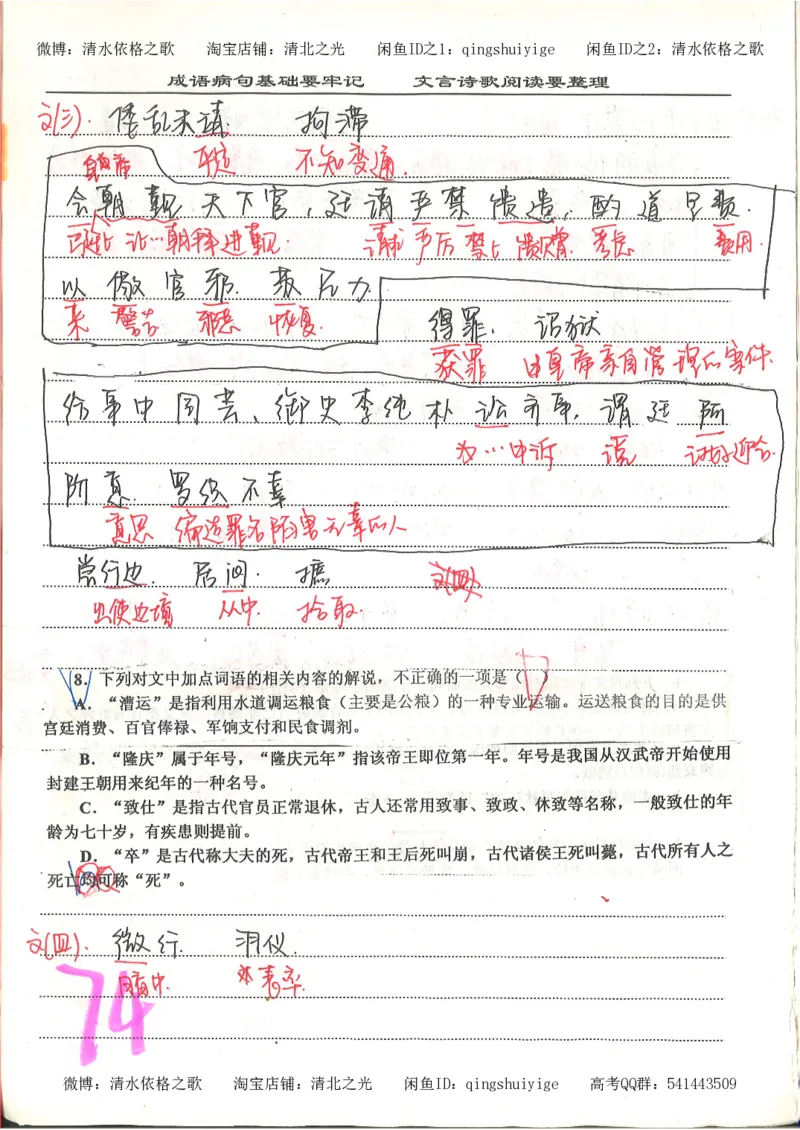 微博：清水依格之歌　　淘宝店铺：清北之光　　闲鱼ID之1：qingshuiyige　　闲鱼ID之2：清水依格之歌
成语病句基础要牢记　　文言诗歌阅读要整理
文(三). 倭乱未靖　　拘滞
平定　　不知变通.
会朝觐天下官，廷请严禁馈遗，酌道里费.
请求 严厉 禁止 馈赠. 考虑 费用.
以儆官邪. 苏民力
来 警告 邪恶 恢复.
得罪. 诏狱
获罪　由皇帝亲自管理的案件.
给事中周芸、御史李纯朴讼其事，谓廷阿
为…申诉　谓　讨好迎合.
阶意　罗织不辜
意思　编造罪名陷害无辜的人
尝行边.　居间.　摭
出使边境　从中.　拾取.
文(四)
8．下列对文中加点词语的相关内容的解说，不正确的一项是（ D ）
A．“漕运”是指利用水道调运粮食（主要是公粮）的一种专业运输。运送粮食的目的是供
宫廷消费、百官俸禄、军饷支付和民食调剂。
B．“隆庆”属于年号，“隆庆元年”指该帝王即位第一年。年号是我国从汉武帝开始使用
封建王朝用来纪年的一种名号。
C．“致仕”是指古代官员正常退休，古人还常用致事、致政、休致等名称，一般致仕的年
龄为七十岁，有疾患则提前。
D．“卒”是古代称大夫的死，古代帝王和王后死叫崩，古代诸侯王死叫薨，古代所有人之
死亡均可称“死”。
文(四).　微行.　羽仪
表率.
74
微博：清水依格之歌　　淘宝店铺：清北之光　　闲鱼ID：qingshuiyige　　高考QQ群：541443509